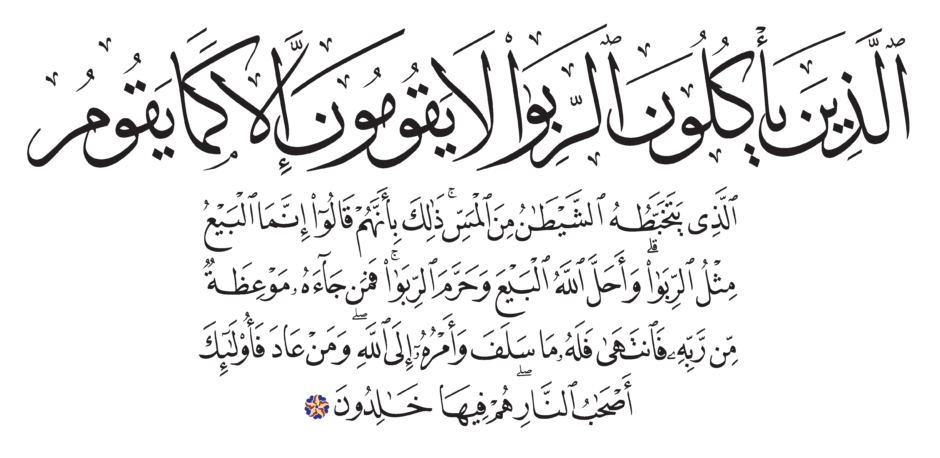 ٱلَّذِينَ يَأْكُلُونَ ٱلرِّبَوٰا۟ لَا يَقُومُونَ إِلَّا كَمَا يَقُومُ
ٱلَّذِى يَتَخَبَّطُهُ ٱلشَّيْطَٰنُ مِنَ ٱلْمَسِّ ۚ ذَٰلِكَ بِأَنَّهُمْ قَالُوٓا۟ إِنَّمَا ٱلْبَيْعُ
مِثْلُ ٱلرِّبَوٰا۟ ۗ وَأَحَلَّ ٱللَّهُ ٱلْبَيْعَ وَحَرَّمَ ٱلرِّبَوٰا۟ ۚ فَمَن جَآءَهُۥ مَوْعِظَةٌ
مِّن رَّبِّهِۦ فَٱنتَهَىٰ فَلَهُۥ مَا سَلَفَ وَأَمْرُهُۥٓ إِلَى ٱللَّهِ ۖ وَمَنْ عَادَ فَأُو۟لَٰٓئِكَ
أَصْحَٰبُ ٱلنَّارِ ۖ هُمْ فِيهَا خَٰلِدُونَ